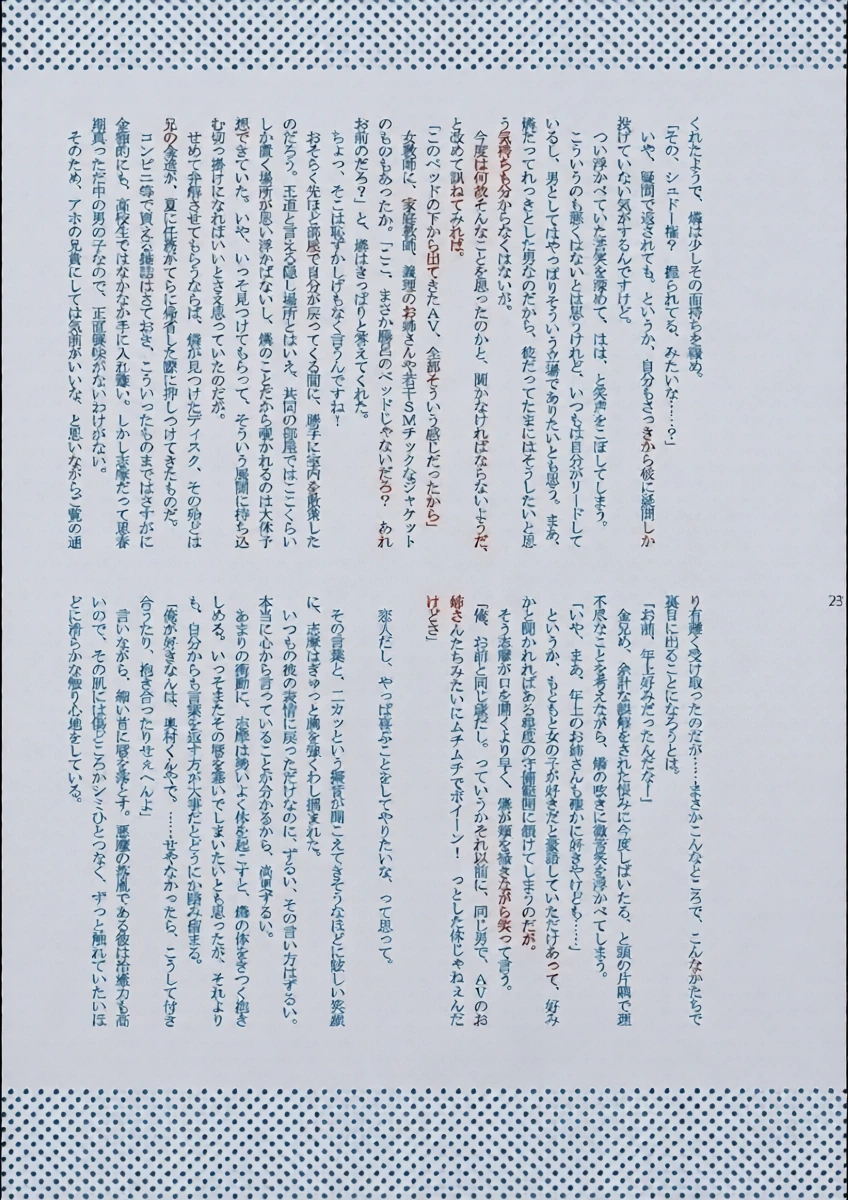 くれたようで、燐は少しその面持ちを緩め。
「その、シュドー権？　握られてる、みたいな……？」
いや、疑問で返されても。というか、自分もさっきから彼に疑問しか
投げていない気がするんですけど。
つい浮かべていた苦笑を深めて、はは、と笑声をこぼしてしまう。
こういうのも悪くはないとは思うけれど、いつもは自分がリードして
いるし、男としてはやっぱりそういう立場でありたいとも思う。まあ、
燐だってれっきとした男なのだから、彼だってたまにはそうしたいと思
う気持ちも分からなくはないが。
今度は何故そんなことを思ったのかと、聞かなければならないようだ、
と改めて訊ねてみれば。
「このベッドの下から出てきたＡＶ、全部そういう感じだったから」
女教師に、家庭教師、義理のお姉さんや若干ＳＭチックなジャケット
のものもあったか。「ここ、まさか勝呂のベッドじゃないだろ？　あれ
お前のだろ？」と、燐はきっぱりと答えてくれた。
ちょっ、そこは恥ずかしげもなく言うんですね！
おそらく先ほど部屋で自分が戻ってくる間に、勝手に室内を散策した
のだろう。王道と言える隠し場所とはいえ、共同の部屋ではここくらい
しか置く場所が思い浮かばないし、燐のことだから覗かれるのは大体予
想できていた。いや、いっそ見つけてもらって、そういう展開に持ち込
む切っ掛けになればいいとさえ思っていたのだが。
せめて弁解させてもらうならば、燐が見つけたディスク、その殆どは
兄の金造が、夏に任務がてらに帰省した際に押しつけてきたものだ。
コンビニ等で買える雑誌はさておき、こういったものまではさすがに
金額的にも、高校生ではなかなか手に入れ難い。しかし志摩だって思春
期真っただ中の男の子なので、正直興味がないわけがない。
そのため、アホの兄貴にしては気前がいいな、と思いながらご覧の通
り有難く受け取ったのだが……まさかこんなところで、こんなかたちで
裏目に出ることになろうとは。
「お前、年上好みだったんだなー」
金兄め、余計な誤解をされた恨みに今度しばいたる、と頭の片隅で理
不尽なことを考えながら、燐の呟きに微苦笑を浮かべてしまう。
「いや、まあ、年上のお姉さんも確かに好きやけども……」
というか、もともと女の子が好きだと豪語していただけあって、好み
かと聞かれればある程度の守備範囲に頷けてしまうのだが。
そう志摩が口を開くより早く、燐が頬を掻きながら笑って言う。
「俺、お前と同じ歳だし。っていうかそれ以前に、同じ男で、ＡＶのお
姉さんたちみたいにムチムチでボイーン！　っとした体じゃねぇんだ
けどさ」
恋人だし、やっぱ喜ぶことをしてやりたいな、って思って。
その言葉と、ニカッという擬音が聞こえてきそうなほどに眩しい笑顔
に、志摩はぎゅっと胸を強くわし掴まれた。
いつもの彼の表情に戻っただけなのに、ずるい、その言い方はずるい。
本当に心から言っていることが分かるから、尚更ずるい。
あまりの衝動に、志摩は勢いよく体を起こすと、燐の体をきつく抱き
しめる。いっそまたその唇を塞いでしまいたいとも思ったが、それより
も、自分からも言葉を返す方が大事だとどうにか踏み留まる。
「俺が好きなんは、奥村くんやで。……せやなかったら、こうして付き
合うたり、抱き合ったりせぇへんよ」
言いながら、細い首に唇を落とす。悪魔の落胤である彼は治癒力も高
いので、その肌には傷どころかシミひとつなく、ずっと触れていたいほ
どに滑らかな触り心地をしている。
23